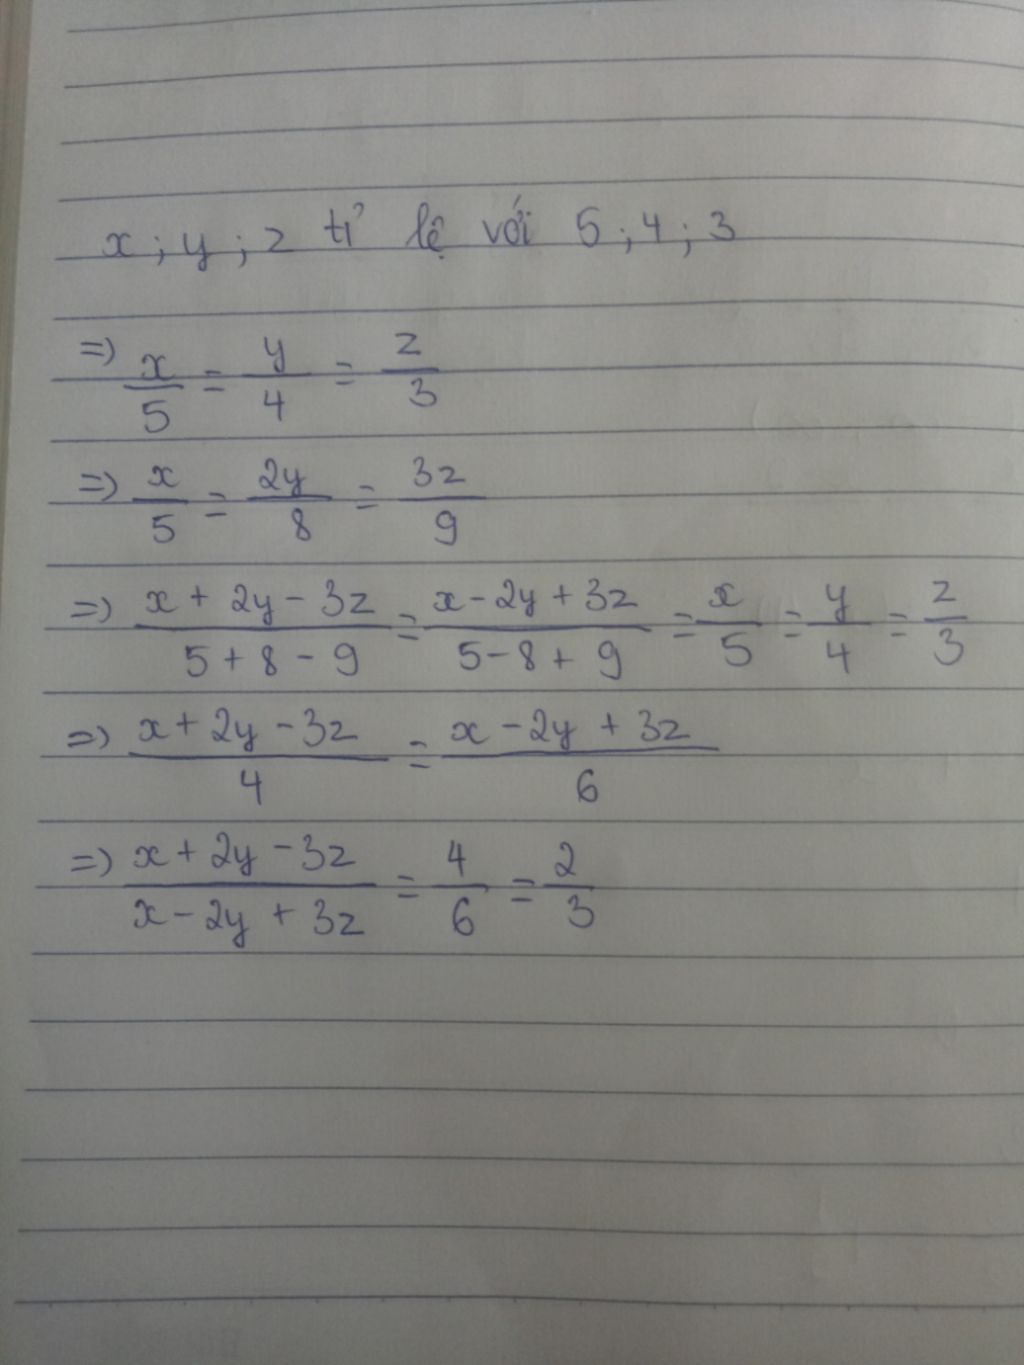 x ; y ; z tỉ lệ với 5 ; 4 ; 3
=> x/5 = y/4 = z/3
=> x/5 = 2y/8 = 3z/9
=> (x + 2y - 3z)/(5 + 8 - 9) = (x - 2y + 3z)/(5 - 8 + 9) = x/5 = y/4 = z/3
=> (x + 2y - 3z)/4 = (x - 2y + 3z)/6
=> (x + 2y - 3z)/(x - 2y + 3z) = 4/6 = 2/3